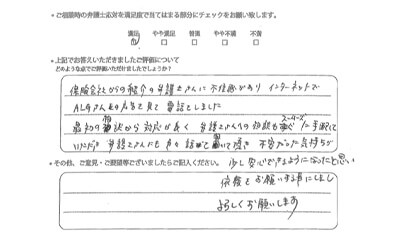 * ご相談時の弁護士応対を満足度で当てはまる部分にチェックをお願い致します。
満足 やや満足 普通 やや不満 不満
* 上記でお答えいただきましたご評価について
どのような点でご評価いただけましたでしょうか?
保険会社からの紹介の弁護士さんに不信感があり インターネットで
ALGさんの広告を見て 電話をしました
最初の相談から対応が良く 弁護士さんへの相談も スムーズに手配して
いただき 弁護士さんにも 話を聞いて頂き 不安だった気持ちが
少し安心できるようになったと思い
* その他、ご意見・ご要望等ございましたらご記入ください。
依頼をお願いする事にしました
よろしくお願いします